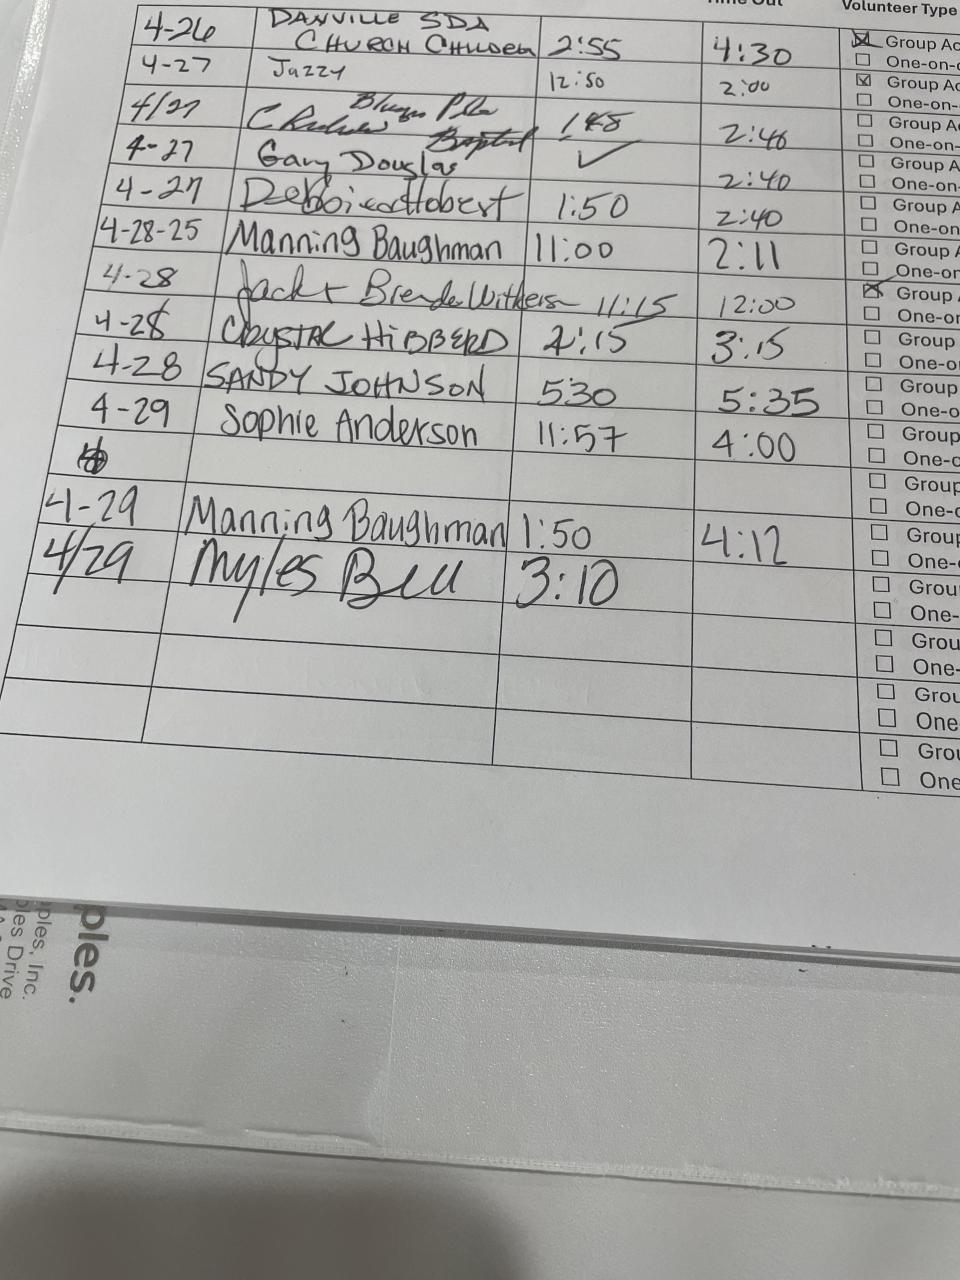 Time Out Volunteer Type
4-26 DANVILLE SDA CHURCH 2:55 4:30 Group Ac
One-on-o
4-27 Jazzy 12:50 2:00 Group Ac
One-on-
4/27 2:46 Group Ac
One-on-
4-27 Gary Douglas ✓ 2:40 Group A
One-on-
4-27 Hobert 1:50 2:40 Group A
One-on
4-28-25 Manning Baughman 11:00 2:11 Group A
One-on
4-28 Jack + Brenda Witherson 11:15 12:00 Group A
One-or
4-28 CRYSTAL HIBBERD 2:15 3:15 Group
One-o
4-28 SANDY JOHNSON 530 5:35 Group
One-o
4-29 Sophie Anderson 11:57 4:00 Group
One-o
Group
One-o
4-29 Manning Baughman 1:50 4:12 Group
One-
4/29 Myles Bell 3:10 Grou
One-
Grou
One-
Grou
One
Grou
One
ples.
ples, Inc.
ples Drive